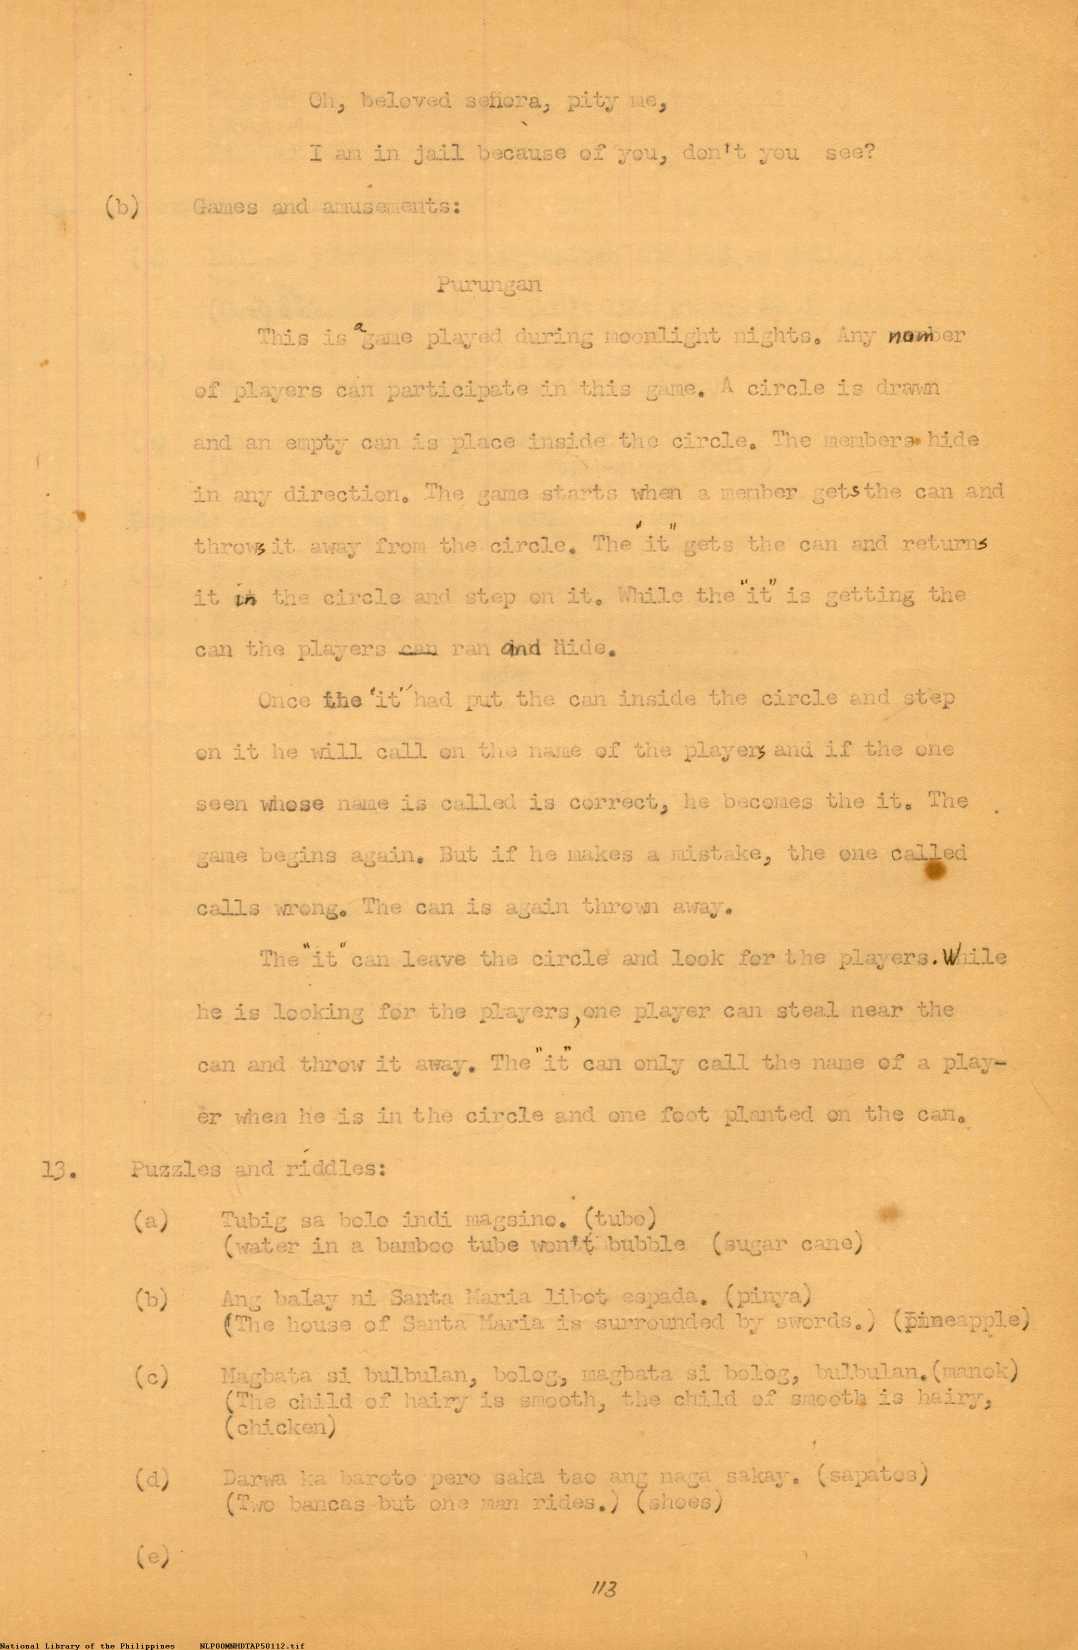 Oh, beloved señora, pity me,
I am in jail because of you, don't you see?
(b) Games and amusements:
Purungan
This is a game played during moonlight nights. Any number
of players can participate in this game. A circle is drawn
and an empty can is place inside the circle. The members hide
in any direction. The game starts when a member gets the can and
throws it away from the circle. The "it" gets the can and returns
it in the circle and step on it. While the "it" is getting the
can the players can ran and hide.
Once the "it" had put the can inside the circle and step
on it he will call on the name of the players and if the one
seen whose name is called is correct, he becomes the it. The
game begins again. But if he makes a mistake, the one called
calls wrong. The can is again thrown away.
The "it" can leave the circle and look for the players. While
he is looking for the players, one player can steal near the
can and throw it away. The "it" can only call the name of a play-
er when he is in the circle and one foot planted on the can.
13. Puzzles and riddles:
(a) Tubig sa bolo indi magsino. (tubo)
(water in a bamboo tube won't bubble (sugar cane)
(b) Ang balay ni Santa Maria libot espada. (pinya)
(The house of Santa Maria is surrounded by swords.) (pineapple)
(c) Magbata si bulbulan, bolog, magbata si bolog, bulbulan. (manok)
(The child of hairy is smooth, the child of smooth is hairy,
(chicken)
(d) Darwa ka baroto pero saka tao ang naga sakay. (sapatos)
(Two bancas but one man rides.) (shoes)
(e)
113
National Library of the Philippines NLP00MNHDTAP50112.tif